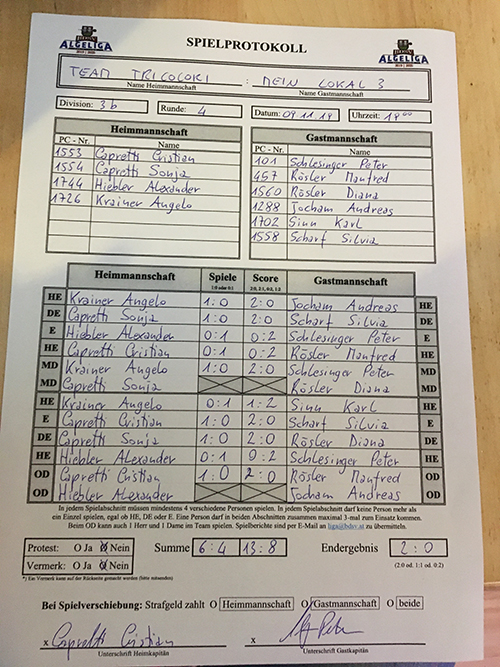 ALGELIGA
SPIELPROTOKOLL
ALGELIGA
TEAM TRICOLORI : MEIN LOKAL 3
Name Heimmannschaft Name Gastmannschaft
Division: 3b Runde: 4 Datum: 09.11.19 Uhrzeit: 18⁰⁰
Heimmannschaft Gastmannschaft
PC - Nr. Name PC - Nr. Name
1553 Capretti Cristian 101 Schlesinger Peter
1554 Capretti Sonja 457 Rösler Manfred
1744 Hiebler Alexander 1560 Rösler Diana
1726 Krainer Angelo 1288 Jocham Andreas
1702 Sinn Karl
1558 Scharf Silvia
Heimmannschaft Spiele Score Gastmannschaft
1:0 oder 0:1 2:0, 2:1, 0:2, 1:2
HE Krainer Angelo 1:0 2:0 Jocham Andreas HE
DE Capretti Sonja 1:0 2:0 Scharf Silvia DE
E Hiebler Alexander 0:1 0:2 Schlesinger Peter E
HE Capretti Cristian 0:1 0:2 Rösler Manfred HE
MD Krainer Angelo 1:0 2:0 Schlesinger Peter MD
MD Capretti Sonja Rösler Diana MD
HE Krainer Angelo 0:1 1:2 Sinn Karl HE
E Capretti Cristian 1:0 2:0 Scharf Silvia E
DE Capretti Sonja 1:0 2:0 Rösler Diana DE
HE Hiebler Alexander 0:1 0:2 Schlesinger Peter HE
OD Capretti Cristian 1:0 2:0 Rösler Manfred OD
OD Hiebler Alexander Jocham Andreas OD
In jedem Spielabschnitt müssen mindestens 4 verschiedene Personen spielen. In jedem Spielabschnitt darf keine Person mehr als
ein Einzel spielen, egal ob HE, DE oder E. Eine Person darf in beiden Abschnitten zusammen maximal 3-mal zum Einsatz kommen.
Beim OD kann auch 1 Herr und 1 Dame im Team spielen. Spielberichte sind per E-Mail an liga@bdsv.st zu übermitteln.
Protest: O Ja O Nein Summe 6:4 13:8 Endergebnis 2:0
Vermerk: O Ja O Nein (2:0 od. 1:1 od. 0:2)
*) Ein Vermerk kann auf der Rückseite gemacht werden (bitte umsenden)
Bei Spielverschiebung: Strafgeld zahlt O Heimmannschaft O Gastmannschaft O beide
x Capretti Cristian x
Unterschrift Heimkapitän Unterschrift Gastkapitän